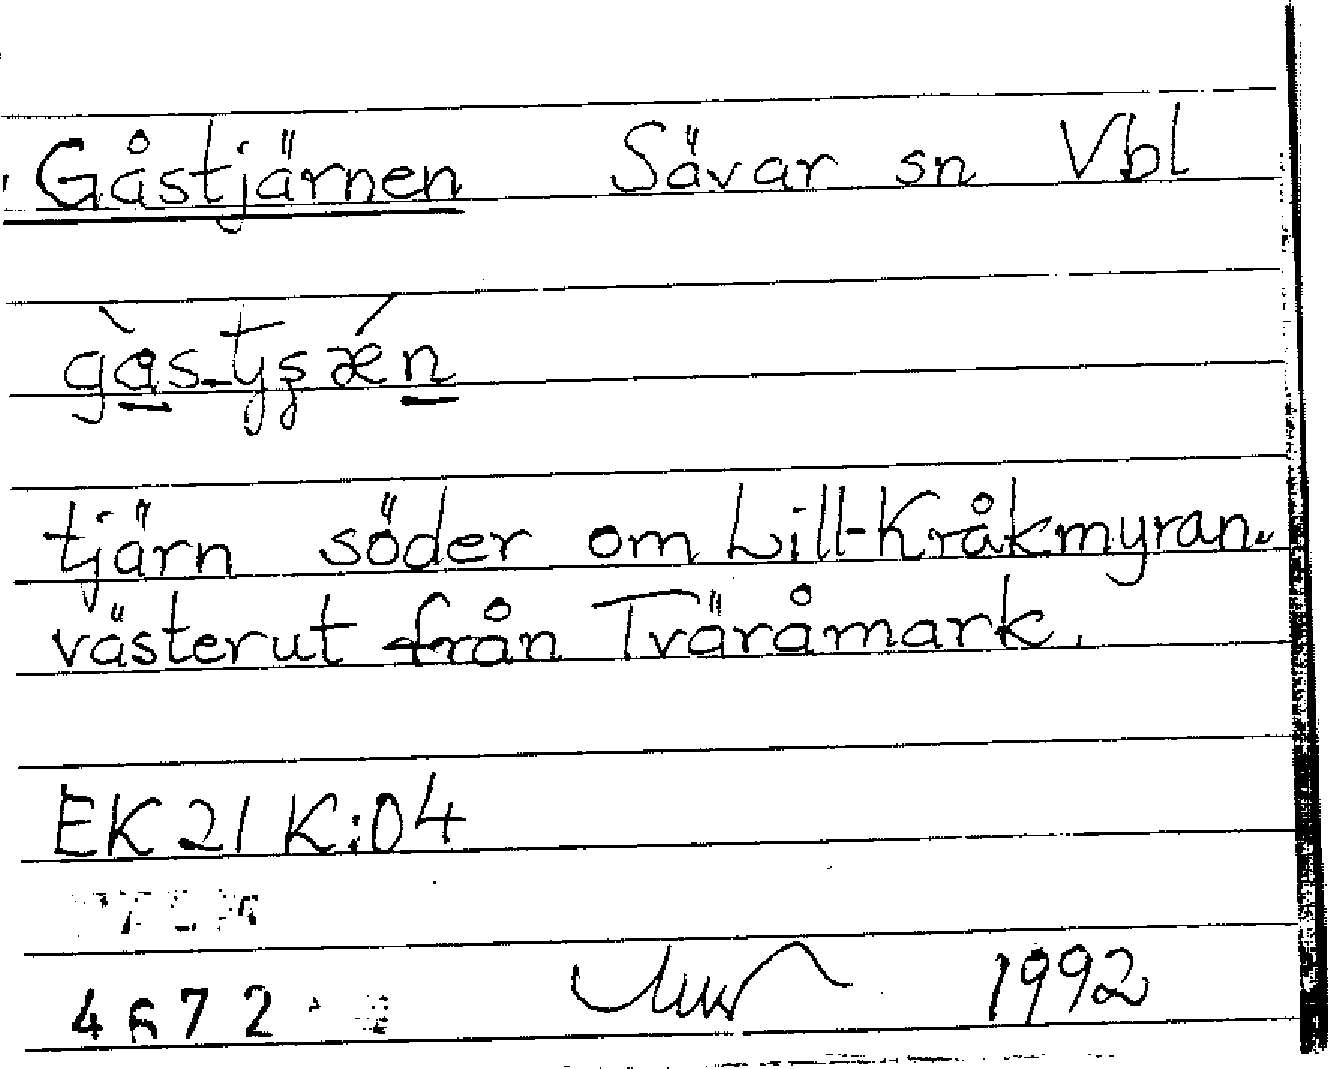 Gåstjärnen Sävar sn Vbl
tjärn söder om Lill-Kråkmyran
västerut från Tväråmark.
EK 21 K:04
4672
1992